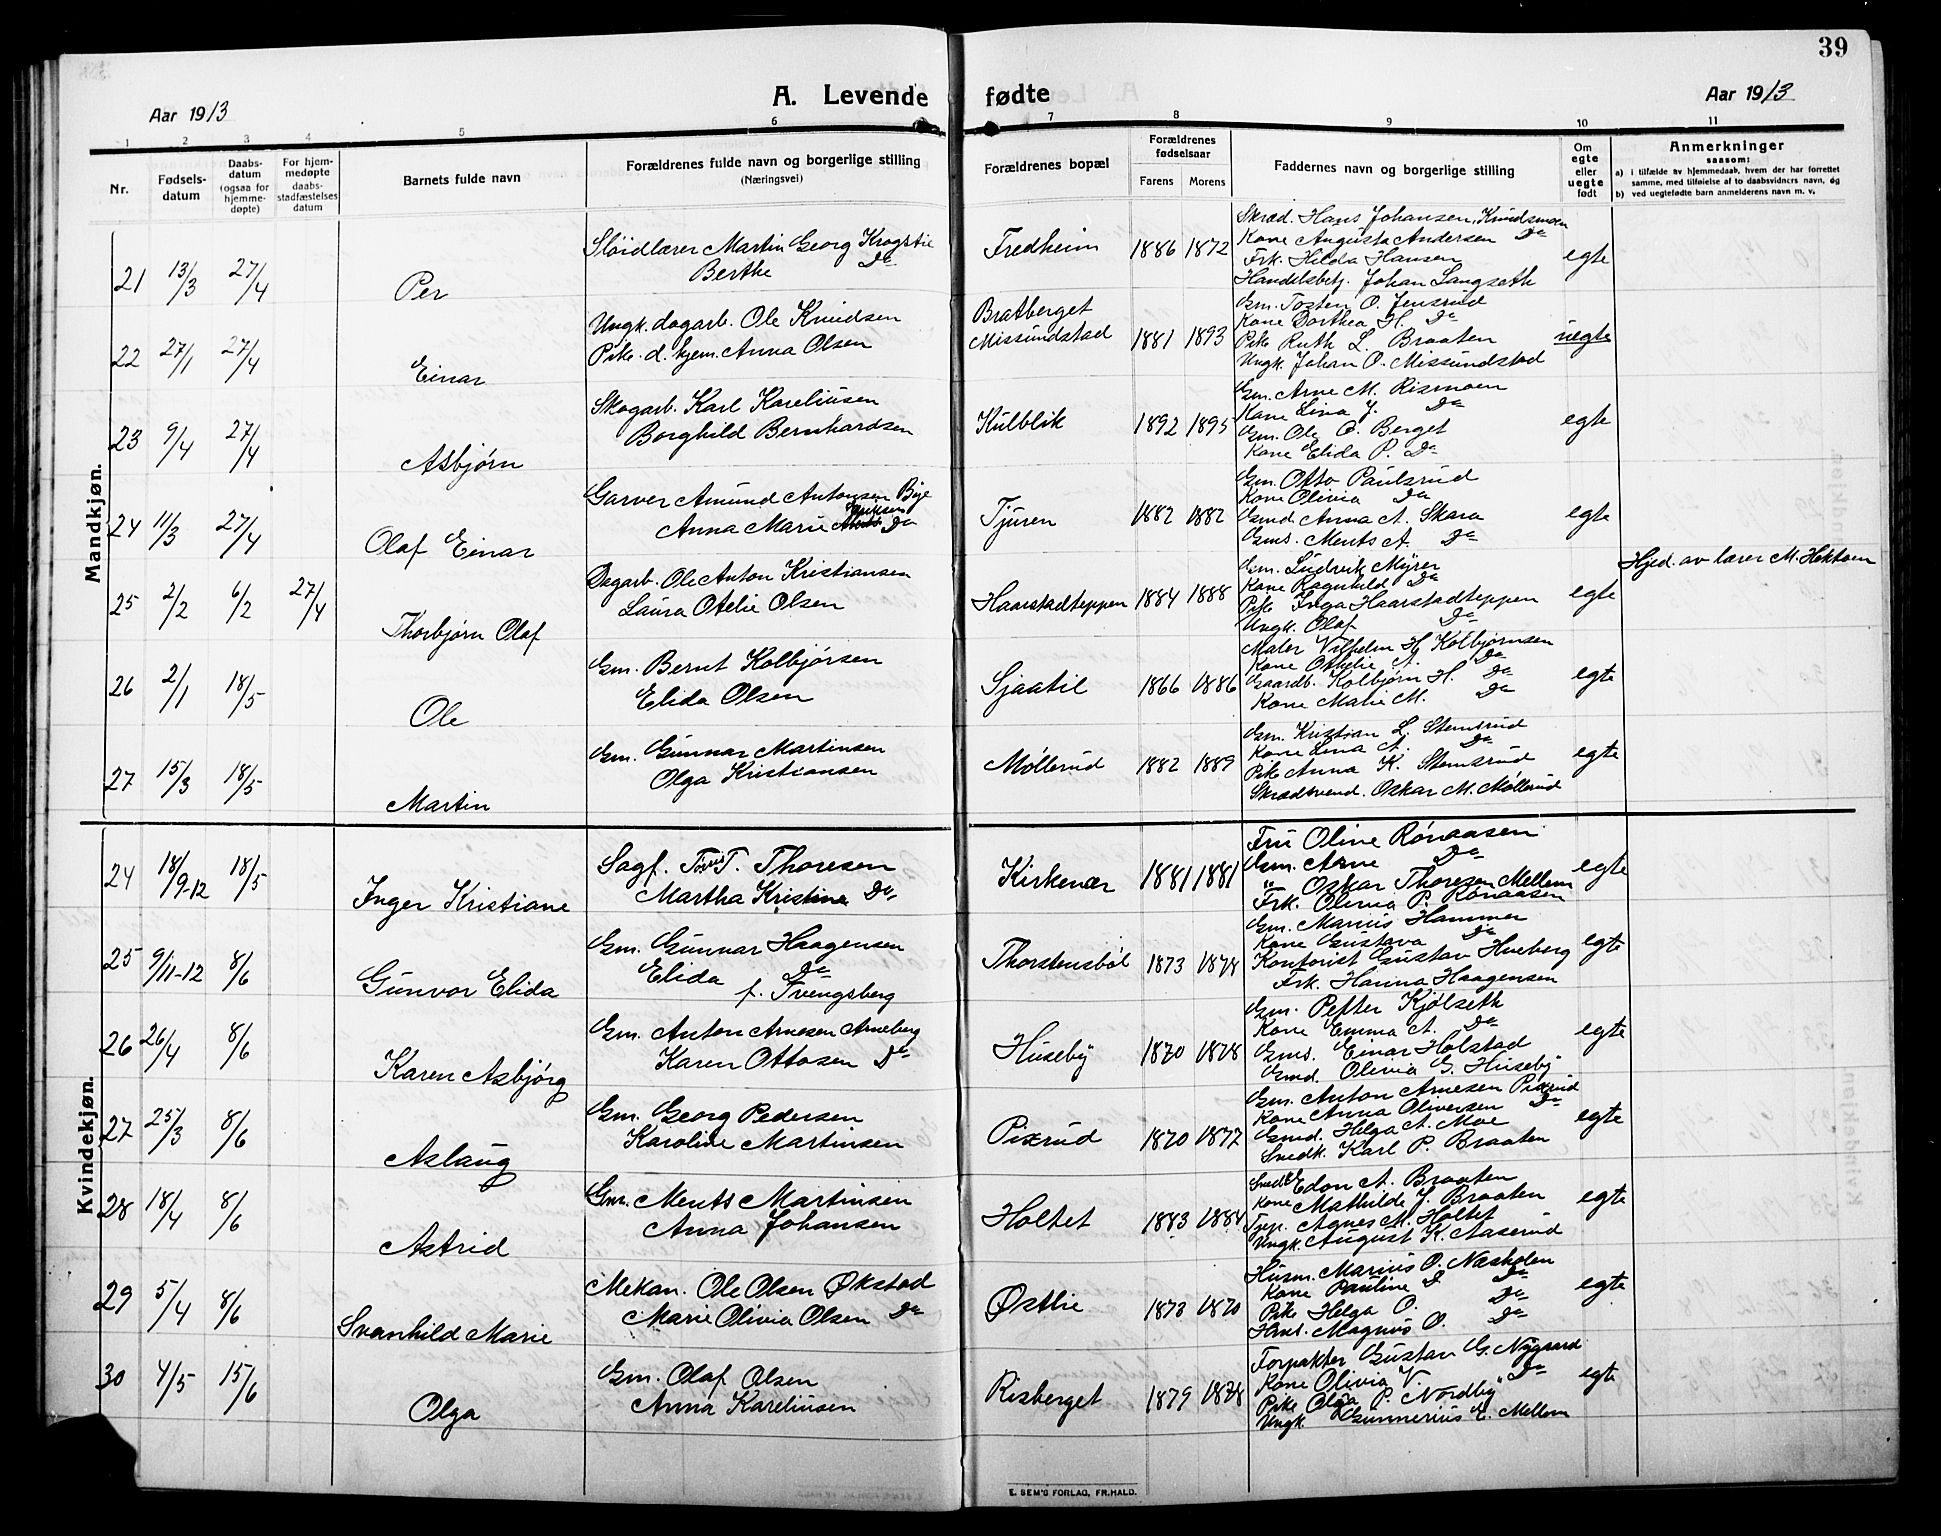 39
A. Levende fødte
Aar 1913
Aar 1913
1 2 3 4 5 6 7 8 9 10 11
Nr.
Fødsels-
datum
Daabs-
datum
(ogsaa for
hjemme-
døpte)
For hjem-
medøpte
daabs-
stadfæstelses
datum
Barnets fulde navn
Forældrenes fulde navn og borgerlige stilling
(Næringsvei)
Forældrenes bopæl
Forældrenes
fødselsaar
Farens Morens
Faddernes navn og borgerlige stilling
Om
egte
eller
uegte
født
Anmerkninger
saasom:
a) i tilfælde av hjemmedaab, hvem der har forrettet
samme, med tilføielse af to daabsvidners navn, og
b) ved uegtefødte barn anmelderens navn m. v.
Mandkjøn.
21 13/3 27/4 Per
Sløidlærer Martin Georg Krogstie
Berthe Do
Fredheim 1886 1872
Skræd. Hans Johansen, Knudsmoen
Kone Augusta Andersen Do
Frk. Hilda Hansen
Handelsbetj. Johan Langseth
egte
22 27/1 27/4 Einar
Ungk. dagarb. Ole Knudsen
Pike d. hjem. Anna Olsen
Bratberget
Missundstad 1881 1893
Gm. Tosten O. Jensrud
Kone Dorthea H. Do
Pike Ruth L. Braaten
Ungk. Johan O. Missundstad
uegte
23 9/4 27/4 Asbjørn
Skogarb. Karl Kareliusen
Borghild Bernhardsen
Kulblik 1892 1895
Gm. Arne M. Rismoen
Kone Lina J. Do
Gm. Ole O. Berget
Kone Elida P. Do
egte
24 11/3 27/4 Olaf Einar
Garver Amund Antonsen Bye
Anna Marie Do
Tjuren 1882 1882
Gm. Otto Paulsrud
Kone Olivia Do
Gmd. Anna A. Skara
Gms. Ments A. Do
egte
25 2/2 6/2 27/4 Thorbjørn Olaf
Dagarb. Ole Anton Kristiansen
Laura Otelie Olsen
Haarstadteppen 1884 1888
Gm. Ludvik Myrer
Kone Ragnhild Do
Pike Inga Haarstadteppen
Ungk. Olaf Do
egte
Hjed. av lærer M. Hoktoen
26 2/1 18/5 Ole
Gm. Bernt Kolbjørsen
Elida Olsen
Sjaatil 1866 1886
Maler Vilhelm H. Kolbjørnsen
Kone Othelie A. Do
Gaardb. Kolbjørn H. Do
Kone Matie M. Do
egte
27 15/3 18/5 Martin
Gm. Gunnar Martinsen
Olga Kristiansen
Møllerud 1882 1889
Gm. Kristian L. Stemsrud
Kone Lina A. Do
Pike Anna K. Stemsrud
Skrædsvend. Oskar M. Møllerud
egte
Kvindekjøn.
24 18/9-12 18/5 Inger Kristiane
Sagf. T. Thoresen
Martha Kristine Do
Kirkenær 1881 1881
Fru Oline Rønaasen
Gm. Arne Do
" Oskar Thoresen Mellem
Frk. Olivia P. Rønaasen
egte
25 9/11-12 8/6 Gunvor Elida
Gm. Gunnar Haagensen
Elida Do
f. Tvengsberg
Thorstensbøl 1873 1878
Gm. Marius Hammer
Kone Gustava Do
Kontorist Gustav Hveberg
Frk. Hanna Haagensen
egte
26 26/4 8/6 Karen Asbjørg
Gm. Anton Arnesen Arneberg
Karen Ottosen Do
Huseby 1870 1878
Gm. Petter Kjølseth
Kone Emma A. Do
Gms. Einar Holstad
Gmd. Olivia G. Huseby
egte
27 25/3 8/6 Aslaug
Gm. Georg Pedersen
Karoline Martinsen
Pixrud 1870 1877
Gm. Anton Arnesen Pixrud
Kone Anna Oliversen Do
Gmd. Helga A. Moe
Snedk. Karl P. Braaten
egte
28 18/4 8/6 Astrid
Gm. Ments Martinsen
Anna Johansen
Holtet 1883 1884
Edon A. Braaten
Kone Mathilde J. Braaten
Tjep. Agnes M. Holtet
Ungk. August K. Aaserud
egte
29 5/4 8/6 Svanhild Marie
Mekan. Ole Olsen Økstad
Marie Olivia Olsen Do
Østlie 1873 1870
Husm. Marius O. Næsholen
Kone Pauline Do
Pike Helga O. Do
Magnus O. Do
egte
30 4/5 15/6 Olga
Gm. Olaf Olsen
Anna Kareliusen
Risberget 1879 1878
Forpakter Gustav G. Nygaard
Kone Olivia V. Do
Pike Olga P. Nordby
Ungk Gunnerius E. Mellem
egte
E. SEM'S FORLAG, FR.HALD.